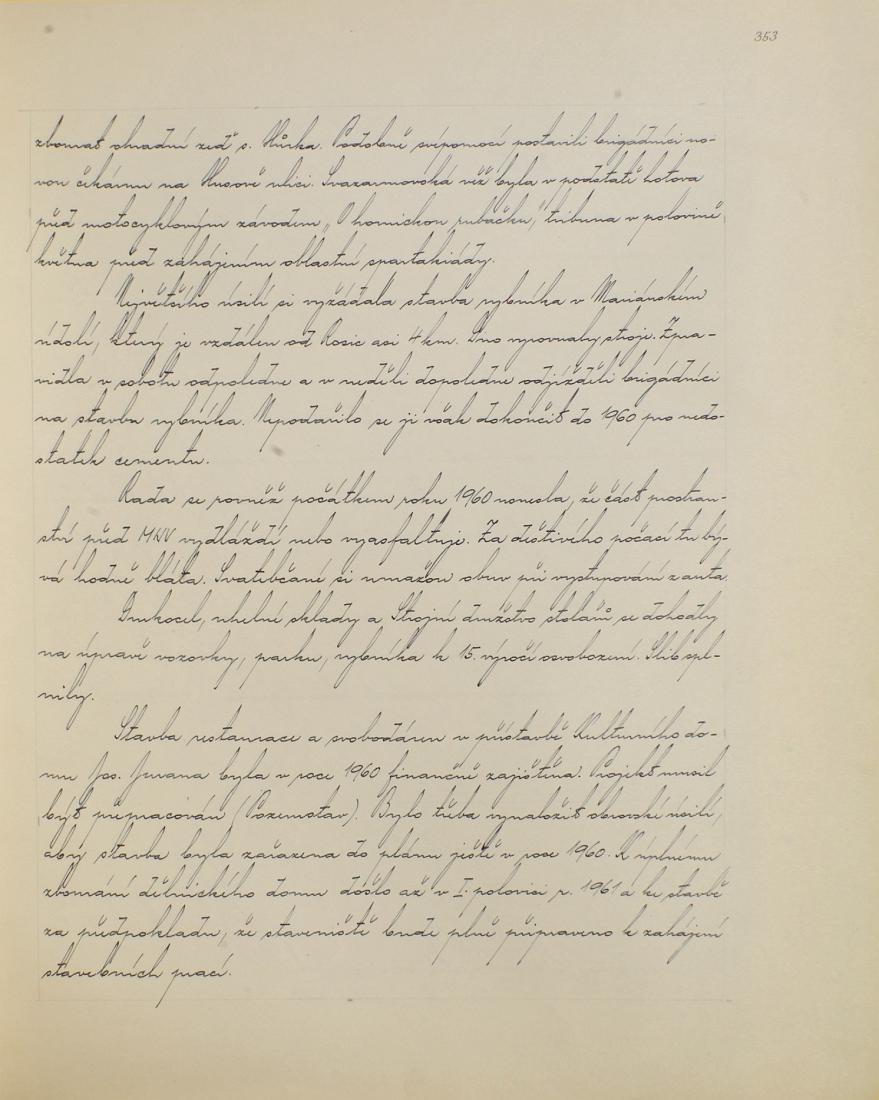 353
zbourat ohradní zeď s. Hůrka. Podobně svépomocí postavili brigádníci no-
vou čekárnu na Husově ulici. Svazarmovská věž byla v podstatě hotova
před motocyklovým závodem „O hornickou rubačku“, tribuna v polovině
května před zahájením oblastní spartakiády.
Největšího úsilí si vyžádala stavba rybníka v Mariánském
údolí, který je vzdálen od Rosic asi 4 km. Dno vyrovnaly stroje. Zpra-
vidla v sobotu odpoledne a v neděli dopoledne odjížděli brigádníci
na stavbu rybníka. Nepodařilo se ji však dokončit do 1960 pro nedo-
statek cementu.
Rada se rovněž počátkem roku 1960 usnesla, že část prostran-
ství před MNV vydláždí nebo vyasfaltuje. Za deštivého počasí tu bý-
vá hodně bláta. Svatebčané si umažou obuv při vystupování z auta.
Drukocel, uhelné sklady a Strojní družstvo stolařů se dohodly
na úpravě vozovky, parku, rybníka k 15. výročí osvobození. Slib spl-
nily.
Stavba restaurace a svobodáren v přístavbě Kulturního do-
mu Jos. Jurana byla v roce 1960 finančně zajištěna. Projekt musil
být přepracován (Pozemstav). Bylo třeba vynaložit obrovské úsilí,
aby stavba byla zařazena do plánu ještě v roce 1960. K úplnému
zbourání dělnického domu došlo až v I. polovici r. 1961 a ke stavbě
za předpokladu, že staveniště bude plně připraveno k zahájení
stavebních prací.